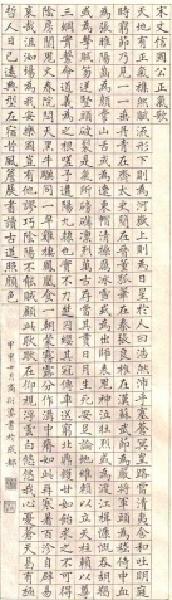 宋文信國公正氣歌
天地有正氣雜然賦流形下則為河嶽上則為日星於人曰浩然沛乎塞蒼冥皇路當清夷含和吐明庭
時窮節乃見一一垂丹青在齊太史簡在晉董狐筆在秦張良椎在漢蘇武節為嚴將軍頭為嵇侍中血
為張睢陽齒為顏常山舌或為遼東帽清操厲冰雪或為出師表鬼神泣壯烈或為渡江楫慷慨吞胡羯
或為擊賊笏逆豎頭破裂是氣所磅礴凜烈萬古存當其貫日月生死安足論地維賴以立天柱賴以尊
三綱實繫命道義為之根嗟予遘陽九隸也實不力楚囚纓其冠傳車送窮北鼎鑊甘如飴求之不可得
陰房闃鬼火春院閟天黑牛驥同一皁雞棲鳳凰食一朝蒙霧露分作溝中瘠如此再寒暑百沴自辟易
哀哉沮洳場為我安樂國豈有他謬巧陰陽不能賊顧此耿耿在仰視浮雲白悠悠我心憂蒼天曷有極
哲人日已遠典型在宿昔風簷展書讀古道照顏色
甲申 月 書於成都